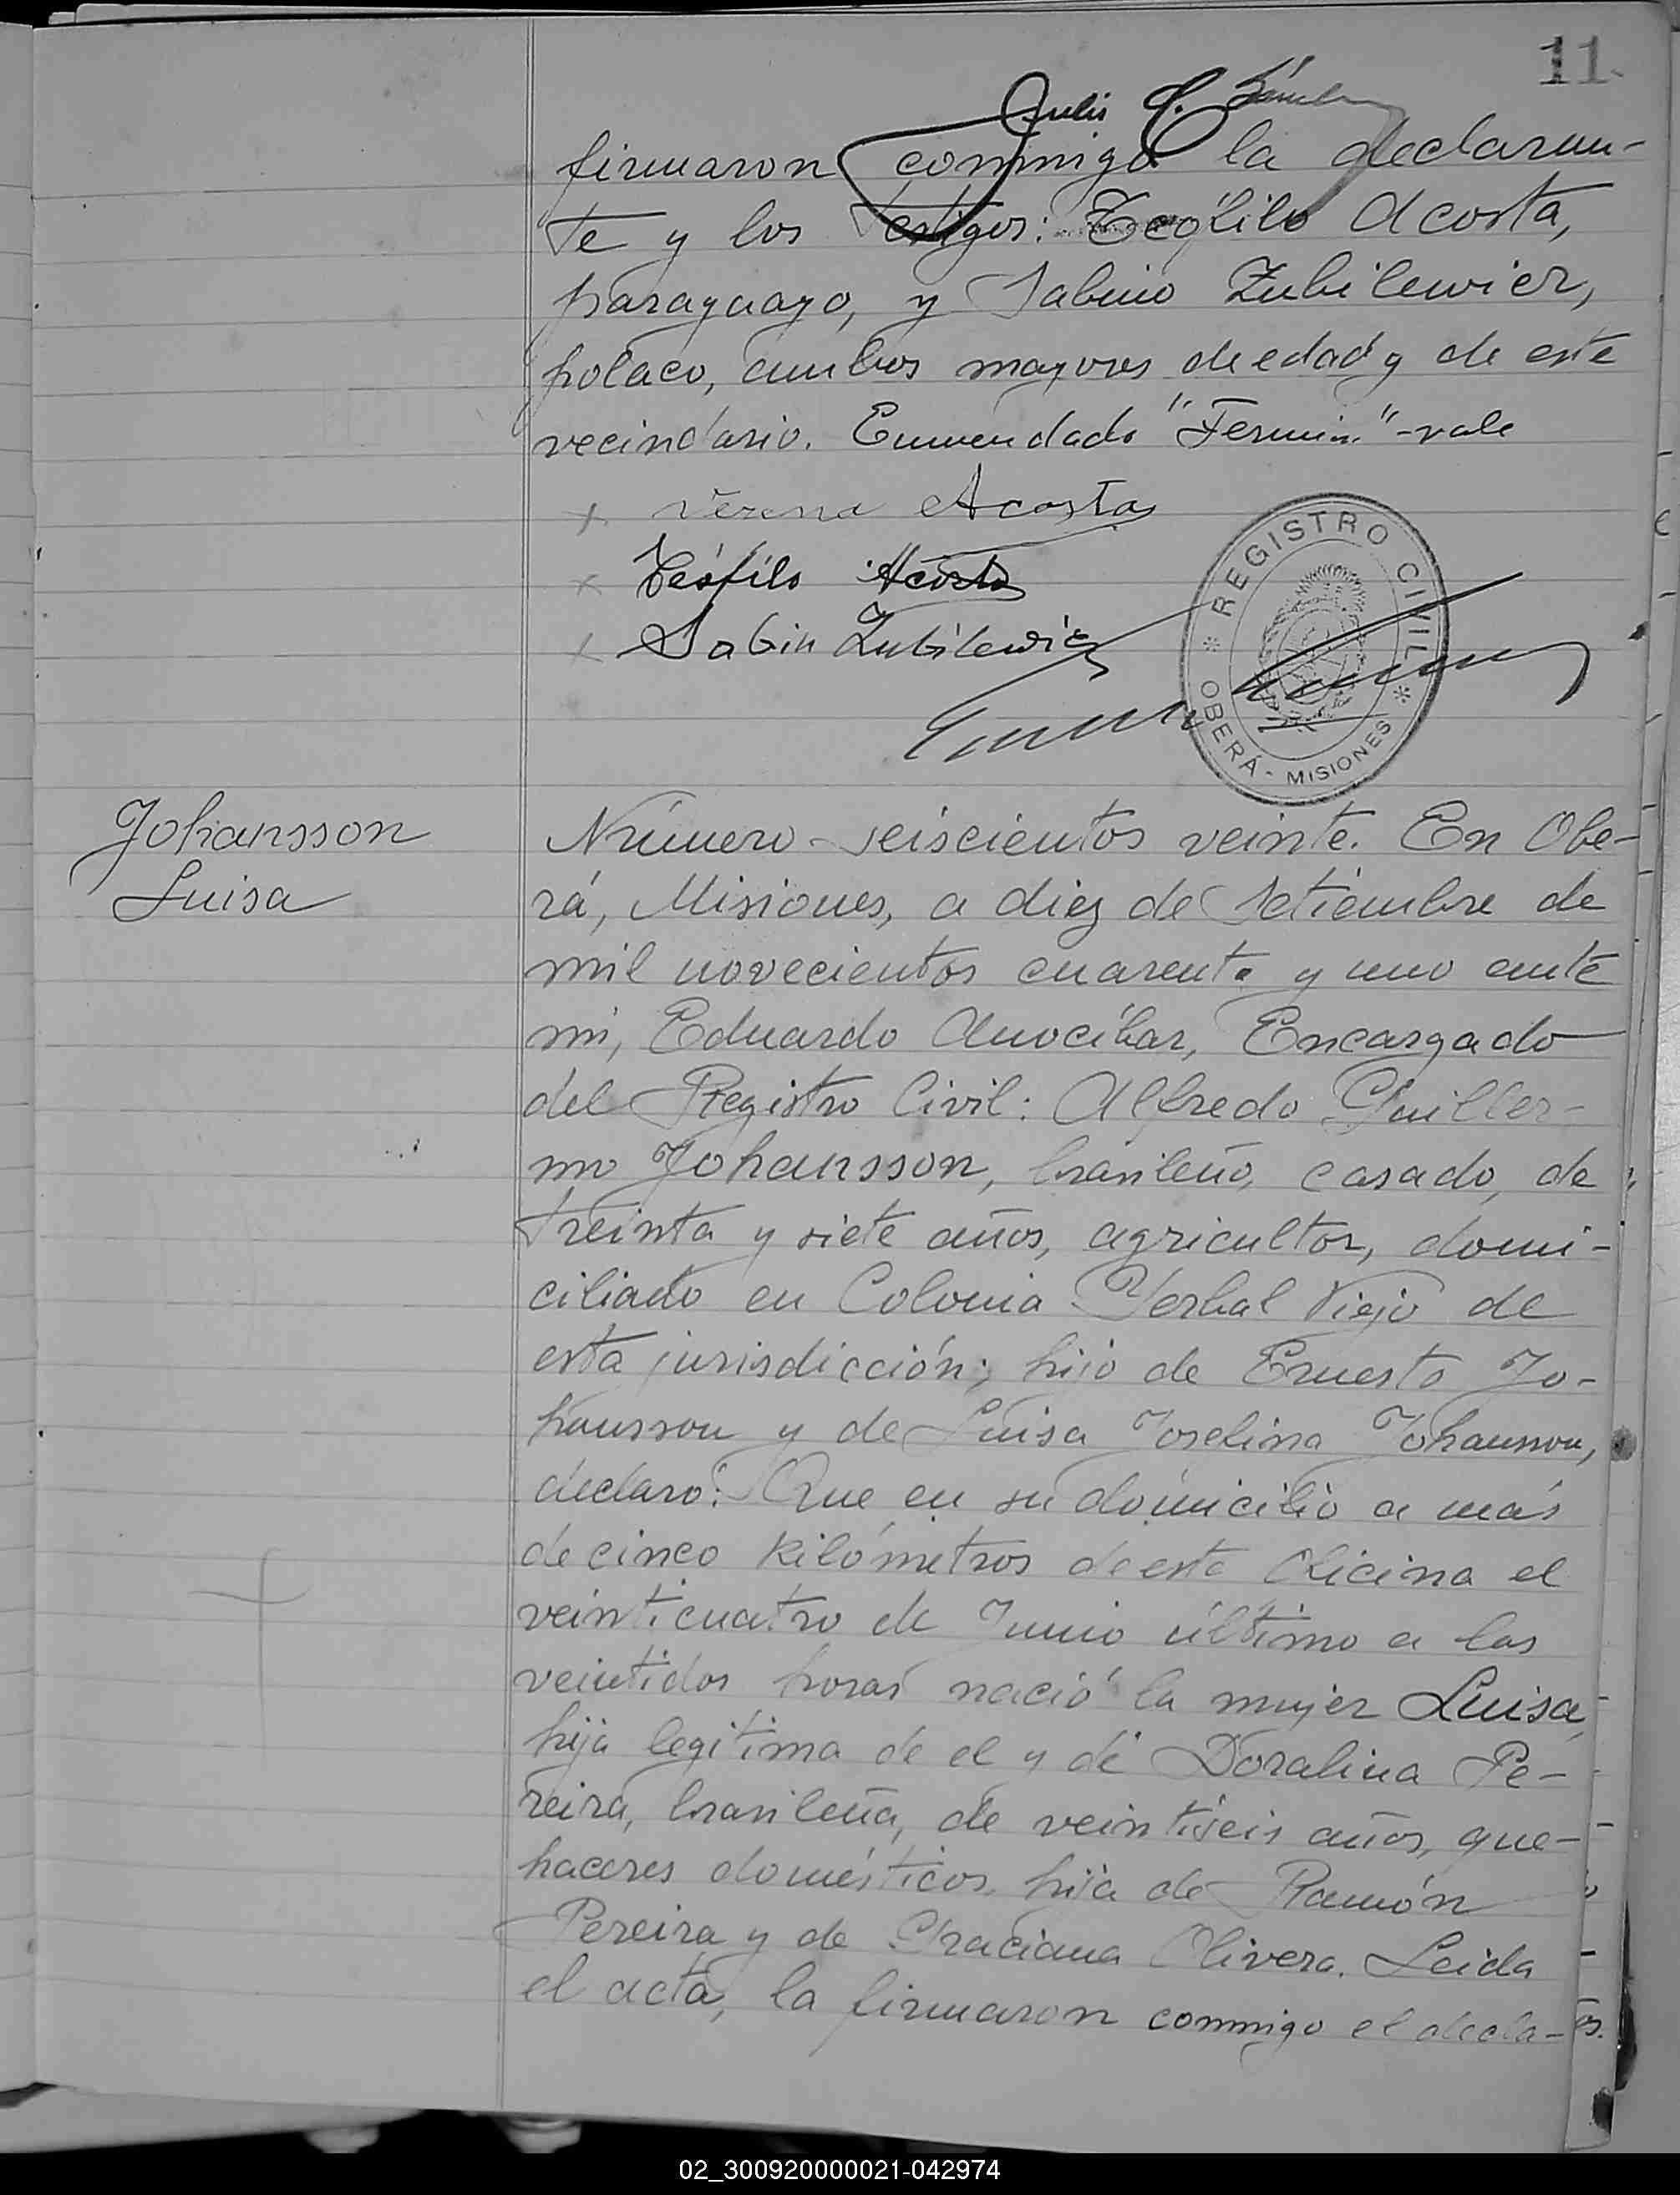 11
firmaron conmigo la declaran-
te y los testigos: Teófilo Acosta,
paraguayo, y Sabino Zubilewicz,
polaco, ambos mayores de edad y de este
vecindario. Enmendado "Fermin"-vale
x Verena Acosta
x Teófilo Acosta
x Sabin Zubilewicz
REGISTRO CIVIL
OBERÁ - MISIONES
Johansson
Luisa
Número seiscientos veinte. En Obe-
rá, Misiones, a diez de Setiembre de
mil novecientos cuarenta y uno ante
mi, Eduardo Anocíbar, Encargado
del Registro Civil: Alfredo Guiller-
mo Johansson, brasileño, casado, de
treinta y siete años, agricultor, domi-
ciliado en Colonia Yerbal Viejo de
esta jurisdicción; hijo de Ernesto Jo-
hansson y de Luisa Joselina Johansson,
declaró: Que en su domicilio a más
de cinco kilómetros de esta Oficina el
veinticuatro de Junio último a las
veintidos horas nació la mujer Luisa,
hija legítima de el y de Doralina Pe-
reira, brasileña, de veintiseis años, que-
haceres domésticos, hija de Ramón
Pereira y de Graciana Olivera. Leida
el acta, la firmaron conmigo el decla-
02_300920000021-042974